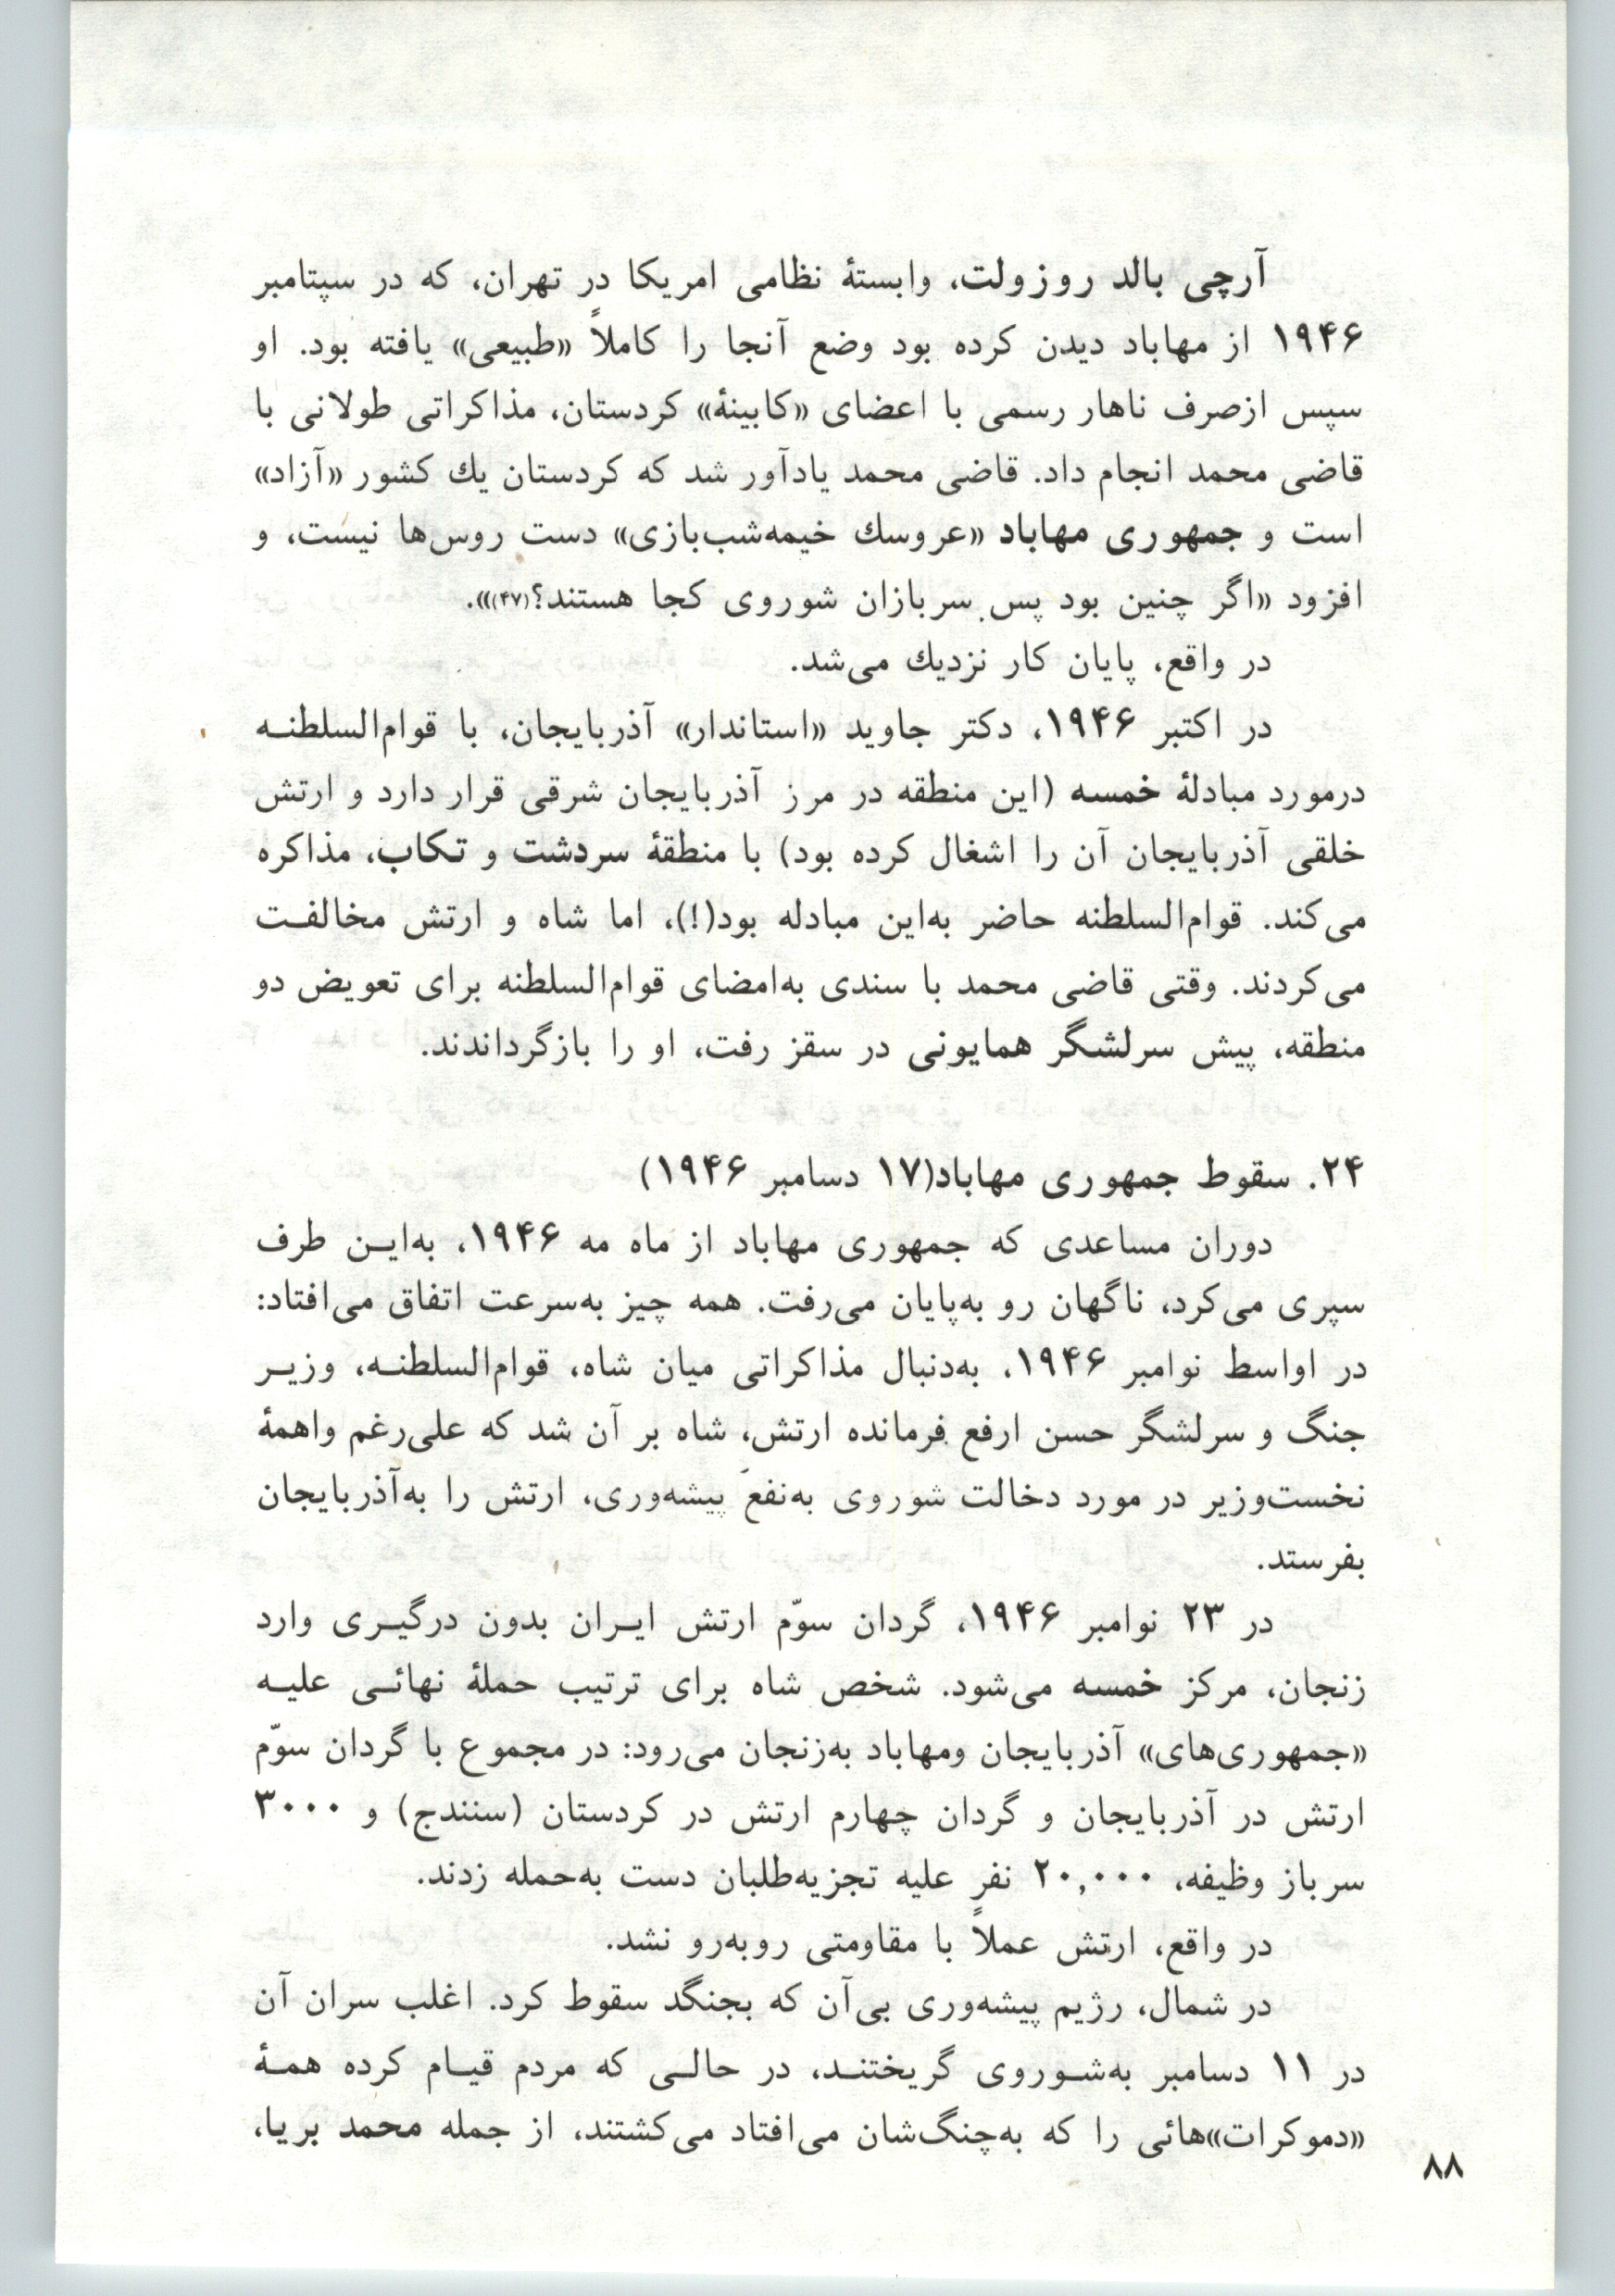 آرچی بالد روزولت، وابستهٔ نظامی امریکا در تهران، که در سپتامبر
۱۹۴۶ از مهاباد دیدن کرده بود وضع آنجا را کاملاً «طبیعی» یافته بود. او
سپس ازصرف ناهار رسمی با اعضای «کابینهٔ» کردستان، مذاکراتی طولانی با
قاضی محمد انجام داد. قاضی محمد یادآور شد که کردستان یك کشور «آزاد»
است و جمهوری مهاباد «عروسك خیمه‌شب‌بازی» دست روس‌ها نیست، و
افزود «اگر چنین بود پس سربازان شوروی کجا هستند؟(۴۷)».
در واقع، پایان کار نزدیك می‌شد.
در اکتبر ۱۹۴۶، دکتر جاوید «استاندار» آذربایجان، با قوام‌السلطنه
درمورد مبادلهٔ خمسه (این منطقه در مرز آذربایجان شرقی قرار دارد و ارتش
خلقی آذربایجان آن را اشغال کرده بود) با منطقهٔ سردشت و تکاب، مذاکره
می‌کند. قوام‌السلطنه حاضر به‌این مبادله بود(!)، اما شاه و ارتش مخالفت
می‌کردند. وقتی قاضی محمد با سندی به‌امضای قوام‌السلطنه برای تعویض دو
منطقه، پیش سرلشگر همایونی در سقز رفت، او را بازگرداندند.
۲۴. سقوط جمهوری مهاباد(۱۷ دسامبر ۱۹۴۶)
دوران مساعدی که جمهوری مهاباد از ماه مه ۱۹۴۶، به‌این طرف
سپری می‌کرد، ناگهان رو به‌پایان می‌رفت. همه چیز به‌سرعت اتفاق می‌افتاد:
در اواسط نوامبر ۱۹۴۶، به‌دنبال مذاکراتی میان شاه، قوام‌السلطنه، وزیر
جنگ و سرلشگر حسن ارفع فرمانده ارتش، شاه بر آن شد که علی‌رغم واهمهٔ
نخست‌وزیر در مورد دخالت شوروی به‌نفع پیشه‌وری، ارتش را به‌آذربایجان
بفرستد.
در ۲۳ نوامبر ۱۹۴۶، گردان سوّم ارتش ایران بدون درگیری وارد
زنجان، مرکز خمسه می‌شود. شخص شاه برای ترتیب حملهٔ نهائی علیه
«جمهوری‌های» آذربایجان ومهاباد به‌زنجان می‌رود: در مجموع با گردان سوّم
ارتش در آذربایجان و گردان چهارم ارتش در کردستان (سنندج) و ۳۰۰۰
سرباز وظیفه، ۲۰,۰۰۰ نفر علیه تجزیه‌طلبان دست به‌حمله زدند.
در واقع، ارتش عملاً با مقاومتی روبه‌رو نشد.
در شمال، رژیم پیشه‌وری بی‌آن که بجنگد سقوط کرد. اغلب سران آن
در ۱۱ دسامبر به‌شوروی گریختند، در حالی که مردم قیام کرده همهٔ
«دموکرات»هائی را که به‌چنگ‌شان می‌افتاد می‌کشتند، از جمله محمد بریا،
۸۸